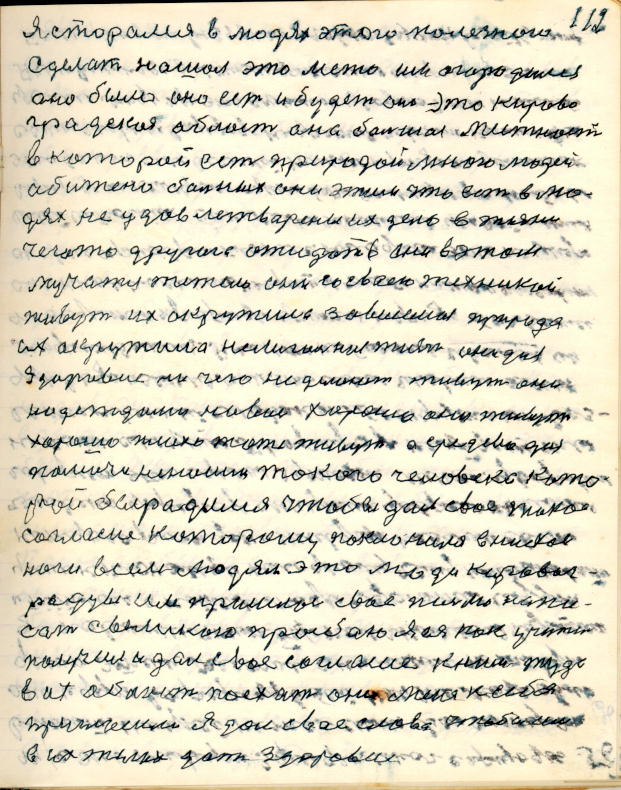 112
Я старался в людях этого полезного
сделат нашол это место им огородился
оно было оно ест и будет оно Это Кирово
градская област она балшая местност
в которой ест природой много людей
абижено балных они этим что ест в лю
дях не удовлетварены их дело в жизни
чегото другого ожидат они в этом
мучатся они со своею техникой
живут их окружила природа
их окружила нелигчая они для
здоровие ни чего не делают живут они
надеждами на хорошо они живут
хорошо плохо тоже живут а средсва для
помочи не нашли токого человека кото
рой бы радился чтобы дал свое токое
согласие которому поклонился в низкое
ноги всем людям это люди кировог
радцы им пришлос свое писмо напи
сат с великою прозбаю Я ея как учител
получил и дал свое согласие к ним туда
в их област поехат они меня к себя
пригласили Я дал свое слово
в их дат здоровие